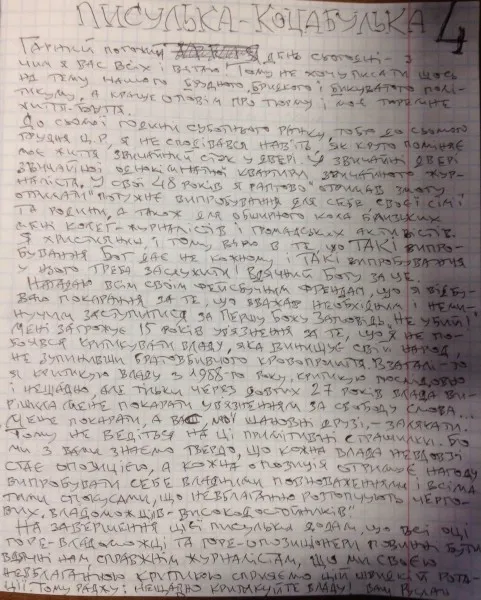 ПИСУЛЬКА-КОЦАБУЛЬКА 4
ГАРНИЙ ПОГОЖИЙ ДЕНЬ СЬОГОДНІ - З
ЧИМ Я ВАС ВСІХ І ВІТАЮ! ТОМУ НЕ ХОЧУ ПИСАТИ ЩОСЬ
НА ТЕМУ НАШОГО БРУДНОГО, БРИДКОГО І БИКУВАТОГО ПОЛІ-
ТИКУМУ, А КРАЩЕ ОПОВІМ ПРО ТЮРМУ І МОЄ ТЮРЕМНЕ
ЖИТТЯ-БУТТЯ.
ДО СЬОМОЇ ГОДИНИ СУБОТНЬОГО РАНКУ, ТОБТО ДО СЬОМОГО
ГРУДНЯ Ц.Р., Я НЕ СПОДІВАВСЯ НАВІТЬ, ЯК КРУТО ПОМІНЯЄ
МОЄ ЖИТТЯ ЗВИЧАЙНИЙ СТУК У ДВЕРІ. У ЗВИЧАЙНІ ДВЕРІ
ЗВИЧАЙНОЇ ОДНОКІМНАТНОЇ КВАРТИРИ ЗВИЧАЙНОГО ЖУР-
НАЛІСТА. У СВОЇ 48 РОКІВ Я РАПТОВО ОТРИМАВ ЗМОГУ
ОПИСАТИ ПОТУЖНЕ ВИПРОБУВАННЯ ДЛЯ СЕБЕ, СВОЄЇ СІМ'Ї
ТА РОДИНИ, А ТАКОЖ ДЛЯ ОБШИРНОГО КОЛА БЛИЗЬКИХ
МЕНІ КОЛЕГ-ЖУРНАЛІСТІВ І ГРОМАДСЬКИХ АКТИВІСТІВ.
Я ХРИСТИЯНИН, І ТОМУ ВІРЮ В ТЕ, ЩО ТАКІ ВИПРО-
БУВАННЯ БОГ ДАЄ НЕ КОЖНОМУ І ТАКІ ВИПРОБУВАННЯ
У НЬОГО ТРЕБА ЗАСЛУЖИТИ! ВДЯЧНИЙ БОГУ ЗА ЦЕ.
НАГАДАЮ ВСІМ СВОЇМ ФЕЙСБУЧНИМ ФРЕНДАМ, ЩО Я ВІДБУ-
ВАЮ ПОКАРАННЯ ЗА ТЕ, ЩО ВВАЖАВ НЕОБХІДНИМ І НЕМИ-
НУЧИМ ЗАСТУПИТИСЯ ЗА ПЕРШУ БОЖУ ЗАПОВІДЬ "НЕ УБИЙ!"
МЕНІ ЗАГРОЖУЄ 15 РОКІВ УВ'ЯЗНЕННЯ ЗА ТЕ, ЩО Я НЕ ПО-
БОЯВСЯ КРИТИКУВАТИ ВЛАДУ, ЯКА ВИНИЩУЄ СВІЙ НАРОД,
НЕ ЗУПИНИВШИ БРАТОВБИВЧОГО КРОВОПРОЛИТТЯ. ВЗАГАЛІ-ТО
Я КРИТИКУЮ ВЛАДУ З 1988-ГО РОКУ, КРИТИКУЮ ПОСЛІДОВНО
І НЕЩАДНО, АЛЕ ТІЛЬКИ ЧЕРЕЗ ДОВГИХ 27 РОКІВ ВЛАДА ВИ-
РІШИЛА МЕНЕ ПОКАРАТИ УВ'ЯЗНЕННЯМ ЗА СВОБОДУ СЛОВА...
МЕНЕ ПОКАРАТИ, А ВАС, МОЇ ШАНОВНІ ДРУЗІ, - ЗАЛЯКАТИ.
ТОМУ НЕ ВЕДІТЬСЯ НА ЦІ ПРИМІТИВНІ СТРАШИЛКИ. БО
МИ З ВАМИ ЗНАЄМО ТВЕРДО, ЩО КОЖНА ВЛАДА НЕВДОВЗІ
СТАЄ ОПОЗИЦІЄЮ, А КОЖНА ОПОЗИЦІЯ ОТРИМУЄ НАГОДУ
ВИПРОБУВАТИ СЕБЕ ВЛАДНИМИ ПОВНОВАЖЕННЯМИ І ВСІМА
ТИМИ СПОКУСАМИ, ЩО НЕВБЛАГАННО РОЗТОПЧУЮТЬ ЧЕРГО-
ВИХ "ВЛАДОМОЖЦІВ-ВИСОКОДОСТОЙНИКІВ".
НА ЗАВЕРШЕННЯ ЦІЄЇ ПИСУЛЬКИ ДОДАМ, ЩО ВСІ ОЦІ
ГОРЕ-ВЛАДОМОЖЦІ ТА ГОРЕ-ОПОЗИЦІОНЕРИ ПОВИННІ БУТИ
ВДЯЧНІ НАМ, СПРАВЖНІМ ЖУРНАЛІСТАМ, ЩО МИ СВОЄЮ
НЕВБЛАГАННОЮ КРИТИКОЮ СПРИЯЄМО ЦІЙ ШВИДКІЙ РОТА-
ЦІЇ. ТОМУ РАДЖУ: НЕЩАДНО КРИТИКУЙТЕ ВЛАДУ! ВАШ РУСЛАН